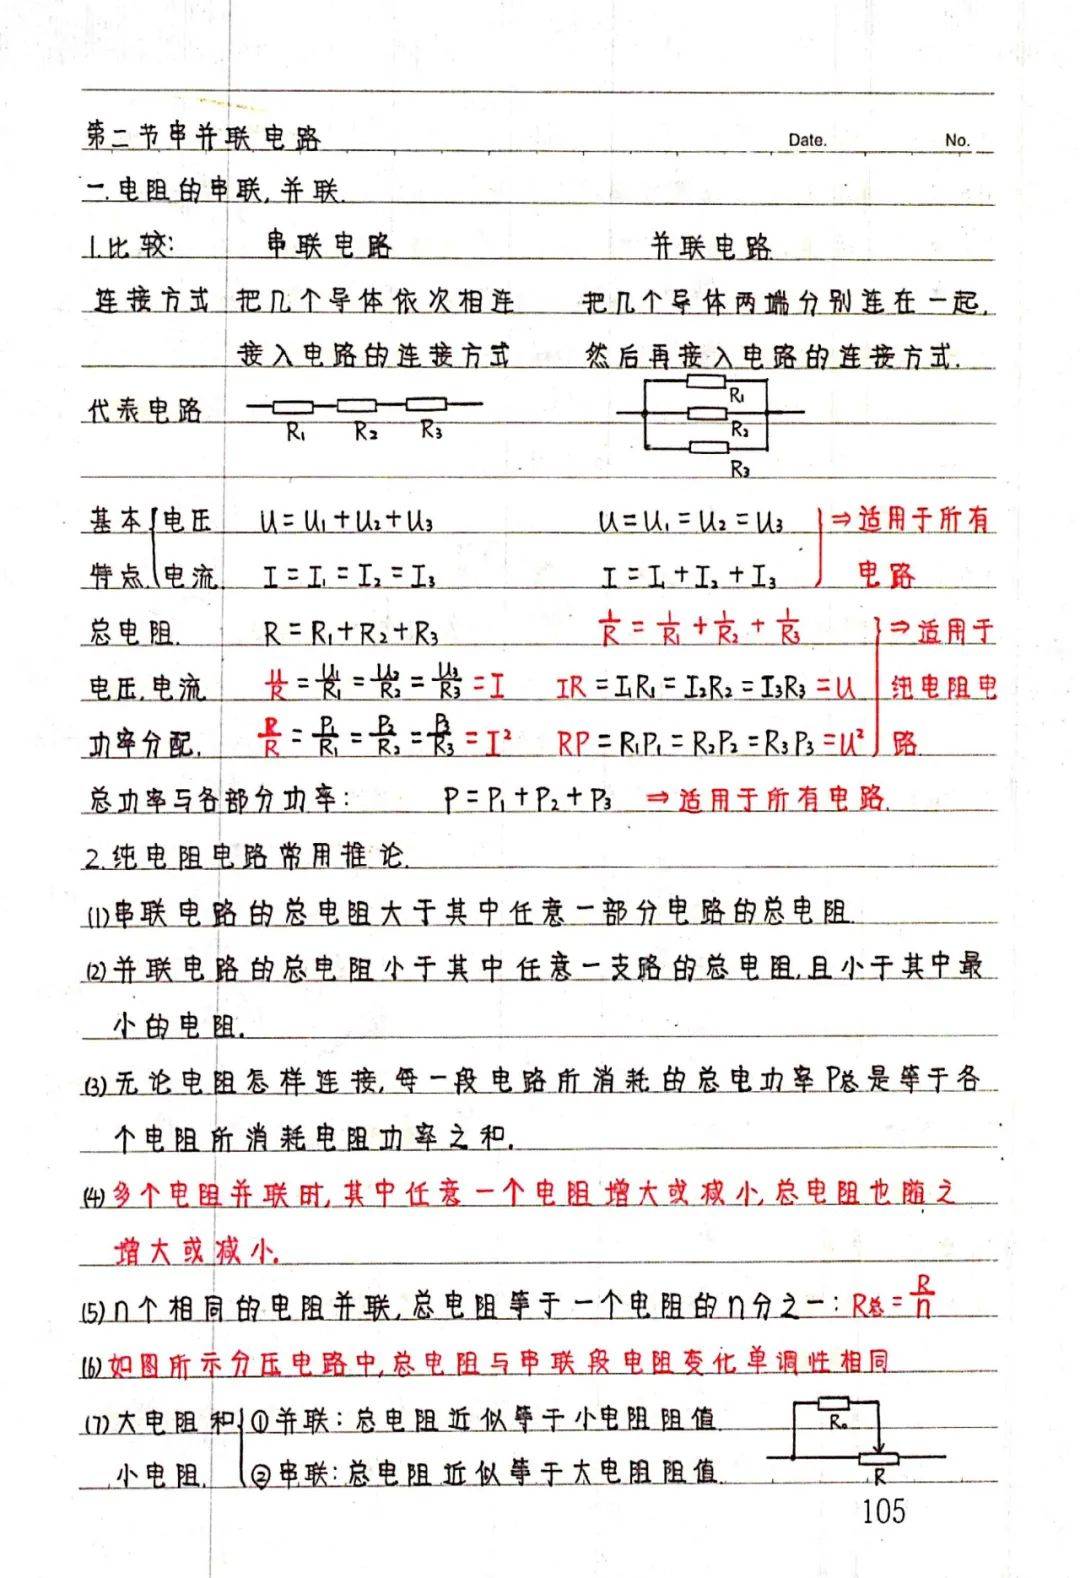 第二节串并联电路 Date. No.
一.电阻的串联,并联.
1.比较: 串联电路 并联电路
连接方式 把几个导体依次相连 把几个导体两端分别连在一起,
接入电路的连接方式 然后再接入电路的连接方式.
代表电路 R₁ R₂ R₃ R₁ R₂ R₃
基本 电压 U=U₁+U₂+U₃ U=U₁=U₂=U₃ ⇒适用于所有
特点. 电流. I=I₁=I₂=I₃ I=I₁+I₂+I₃ 电路
总电阻. R=R₁+R₂+R₃ 1/R=1/R₁+1/R₂+1/R₃ ⇒适用于
电压,电流 U/R=U₁/R₁=U₂/R₂=U₃/R₃=I IR=I₁R₁=I₂R₂=I₃R₃=U 纯电阻电
功率分配. P/R=P₁/R₁=P₂/R₂=P₃/R₃=I² RP=R₁P₁=R₂P₂=R₃P₃=U² 路.
总功率与各部分功率: P=P₁+P₂+P₃ ⇒适用于所有电路.
2.纯电阻电路常用推论.
(1)串联电路的总电阻大于其中任意一部分电路的总电阻.
(2)并联电路的总电阻小于其中任意一支路的总电阻,且小于其中最
小的电阻.
(3)无论电阻怎样连接,每一段电路所消耗的总电功率P总是等于各
个电阻所消耗电阻功率之和.
(4)多个电阻并联时,其中任意一个电阻增大或减小,总电阻也随之
增大或减小.
(5)n个相同的电阻并联,总电阻等于一个电阻的n分之一:R总=R/n
(6)如图所示分压电路中,总电阻与串联段电阻变化单调性相同
(7)大电阻和 ①并联:总电阻近似等于小电阻阻值. R₀
小电阻. ②串联:总电阻近似等于大电阻阻值. R
105